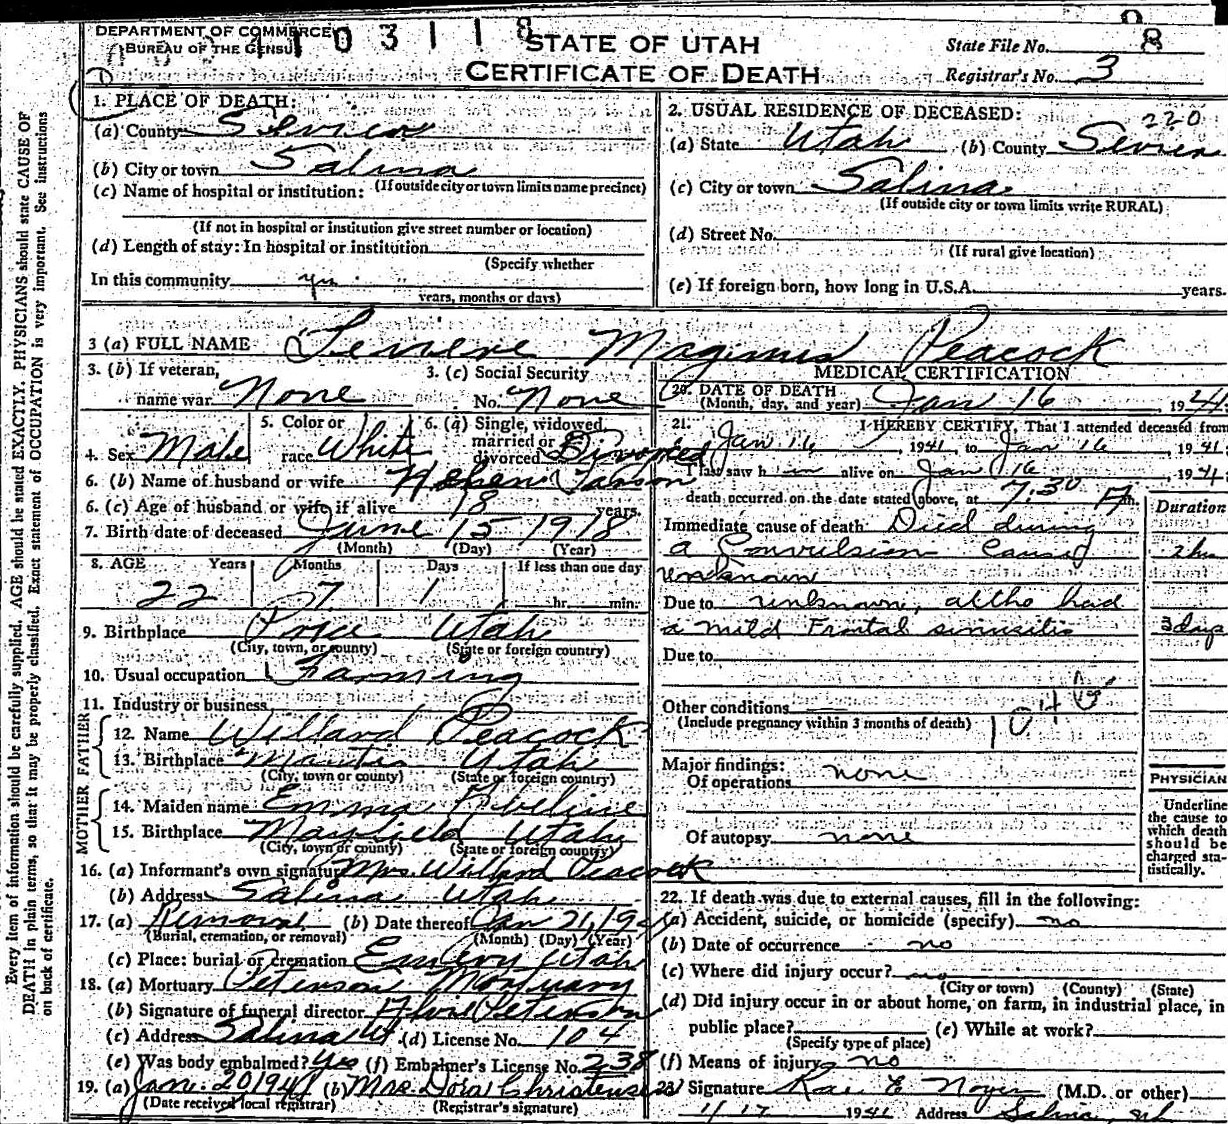 DEPARTMENT OF COMMERCE
BUREAU OF THE CENSUS
1 0 3 1 1 8
STATE OF UTAH
CERTIFICATE OF DEATH
State File No. 8
Registrar's No. 3
1. PLACE OF DEATH:
(a) County Sevier
(b) City or town Salina
(If outside city or town limits name precinct)
(c) Name of hospital or institution:
(If not in hospital or institution give street number or location)
(d) Length of stay: In hospital or institution
(Specify whether
In this community
years, months or days)
2. USUAL RESIDENCE OF DECEASED:
220
(a) State Utah (b) County Sevier
(c) City or town Salina
(If outside city or town limits write RURAL)
(d) Street No.
(If rural give location)
(e) If foreign born, how long in U.S.A. years.
3 (a) FULL NAME Magnus Peacock
3. (b) If veteran, name war None
3. (c) Social Security No. None
4. Sex Male
5. Color or race White
6. (a) Single, widowed, married or divorced Divorced
6. (b) Name of husband or wife
6. (c) Age of husband or wife if alive 18 years.
7. Birth date of deceased June 15 1918
(Month) (Day) (Year)
8. AGE Years Months Days If less than one day
22 7 1 hr. min.
9. Birthplace Utah
(City, town, or county) (State or foreign country)
10. Usual occupation Farming
11. Industry or business
FATHER
12. Name Willard Peacock
13. Birthplace Manti Utah
(City, town or county) (State or foreign country)
MOTHER
14. Maiden name Emma
15. Birthplace Mayfield Utah
(City, town or county) (State or foreign country)
16. (a) Informant's own signature Mrs. Willard Peacock
(b) Address Salina Utah
17. (a) Removal (b) Date thereof Jan 21, 194
(Burial, cremation, or removal) (Month) (Day) (Year)
(c) Place: burial or cremation Emery Utah
18. (a) Mortuary Peterson Mortuary
(b) Signature of funeral director Peterson
(c) Address Salina Ut (d) License No. 104
(e) Was body embalmed? Yes (f) Embalmer's License No. 238
19. (a) Jan. 20 1941 (b) Mrs. Dora Christensen
(Date received local registrar) (Registrar's signature)
MEDICAL CERTIFICATION
20. DATE OF DEATH Jan 16 194
(Month, day, and year)
21. I HEREBY CERTIFY, That I attended deceased from
Jan 16, 1941, to Jan 16, 1941.
I last saw him alive on Jan 16, 194
death occurred on the date stated above, at 7:30 m.
Duration
Immediate cause of death Died during
a Convulsion Caused 2 hrs
unknown
Due to unknown, altho had
a mild Frontal sinusitis 3 days
Due to
Other conditions
(Include pregnancy within 3 months of death)
Major findings:
Of operations none
Of autopsy none
PHYSICIAN
Underline
the cause to
which death
should be
charged sta-
tistically.
22. If death was due to external causes, fill in the following:
(a) Accident, suicide, or homicide (specify) no
(b) Date of occurrence no
(c) Where did injury occur? no
(City or town) (County) (State)
(d) Did injury occur in or about home, on farm, in industrial place, in
public place? (e) While at work?
(Specify type of place)
(f) Means of injury no
23. Signature Rae E Noyes (M.D. or other)
1/17 1941 Address Salina, Ut
Every item of information should be carefully supplied. AGE should be stated EXACTLY. PHYSICIANS should state CAUSE OF
DEATH in plain terms, so that it may be properly classified. Exact statement of OCCUPATION is very important. See instructions
on back of certificate.